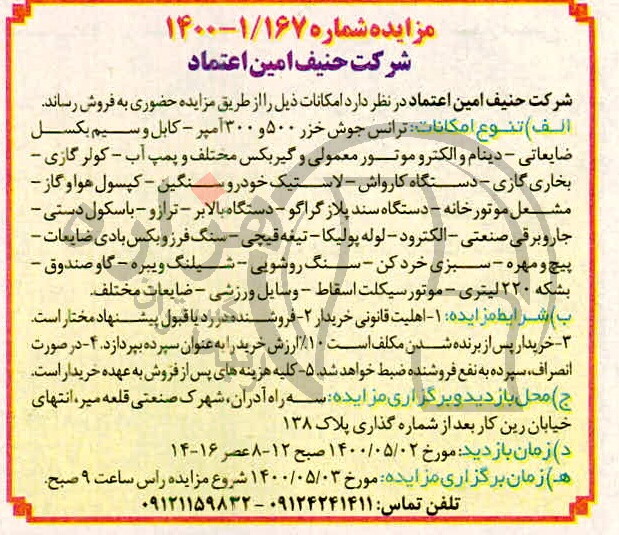 مزایده شماره ۱/۱۶۷-۱۴۰۰
شرکت حنیف امین اعتماد
شرکت حنیف امین اعتماد در نظر دارد امکانات ذیل را از طریق مزایده حضوری به فروش رساند.
الف) تنوع امکانات: ترانس جوش خزر ۵۰۰ و ۳۰۰ آمپر - کابل و سیم بکسل
ضایعاتی - دینام و الکترو موتور معمولی و گیربکس مختلف و پمپ آب - کولر گازی -
بخاری گازی - دستگاه کارواش - لاستیک خودرو سنگین - کپسول هوا و گاز -
مشعل موتورخانه - دستگاه سند پلاژ گراگو - دستگاه بالابر - ترازو - باسکول دستی -
جاروبرقی صنعتی - الکترود - لوله پولیکا - تیغه قیچی - سنگ فرز و بکس بادی ضایعات -
پیچ و مهره - سبزی خرد کن - سنگ روشویی - شیلنگ ویبره - گاو صندوق -
بشکه ۲۲۰ لیتری - موتور سیکلت اسقاط - وسایل ورزشی - ضایعات مختلف.
ب) شرایط مزایده: ۱- اهلیت قانونی خریدار ۲- فروشنده در رد یا قبول پیشنهاد مختار است.
۳- خریدار پس از برنده شدن مکلف است ۱۰٪ ارزش خرید را به عنوان سپرده بپردازد. ۴- در صورت
انصراف، سپرده به نفع فروشنده ضبط خواهد شد. ۵- کلیه هزینه های پس از فروش به عهده خریدار است.
ج) محل بازدید و برگزاری مزایده: سه راه آدران، شهرک صنعتی قلعه میر، انتهای
خیابان رین کار بعد از شماره گذاری پلاک ۱۳۸
د) زمان بازدید: مورخ ۱۴۰۰/۰۵/۰۲ صبح ۱۲-۸ عصر ۱۶-۱۴
هـ) زمان برگزاری مزایده: مورخ ۱۴۰۰/۰۵/۰۳ شروع مزایده راس ساعت ۹ صبح.
تلفن تماس: ۰۹۱۲۴۲۴۱۴۱۱ - ۰۹۱۲۱۱۵۹۸۳۲